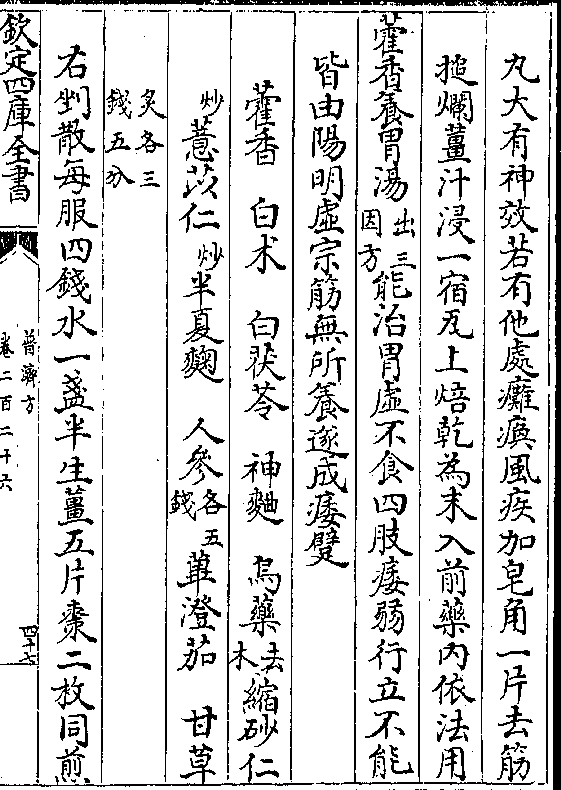 丸大有神效若有他處癱瘓風疾加皂角一片去筋
搥爛薑汁浸一宿瓦上焙乾為末入前藥内依法用
藿香養胃湯出三因方能治胃虚不食四肢痿弱行立不能
皆由陽明虚宗筋無所養遂成痿躄
藿香 白术 白茯苓 神麯 烏藥去木縮砂仁
炒薏苡仁炒半夏麴 人參各五錢蓽澄茄 甘草
炙各三錢五分
右剉散每服四錢水一盞半生薑五片棗二枚同煎
欽定四庫全書
普濟方
卷二百二十六
四十七